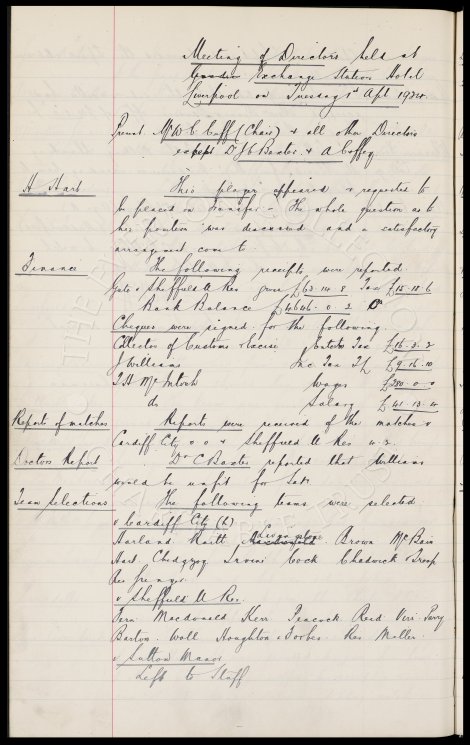 Meeting of Directors held at
Exchange Station Hotel
Liverpool on Tuesday 1st Apl 1924.
Present Mr W C Cuff (Chair) & all other Directors
except Dr J C Baxter & A Coffey
H Hart
This player appeared & requested to
be placed on Transfer - The whole question as to
his position was discussed and a satisfactory
arrangement come to.
Finance
The following receipts were reported.
Gate v Sheffield U Res gross £63.14.8 Tax £15.18.6
Bank Balance £4646.0.3
Cheques were signed for the following.
Collector of Customs & Excise Entert Tax £16.3.2
J Williams Inc Tax £9.16.10
T H McIntosh Wages £280.0.0
do Salary £41.13.4
Report of matches
Reports were received of the matches v
Cardiff City 0 0 & Sheffield U Res 4.2.
Doctors Report
Dr C Baxter reported that Williams
would be unfit for Sat.
Team Selections
The following teams were selected
v Cardiff City (h)
Harland Raitt Livingstone Brown McBain
Hart Chedgzoy Irvine Cock Chadwick & Troup
Res
v Sheffield U Res.
Fern Macdonald Kerr Peacock Reid Virr Parry
Barton Wall Houghton & Forbes Res Moller
v Sutton Manor
Left to Staff